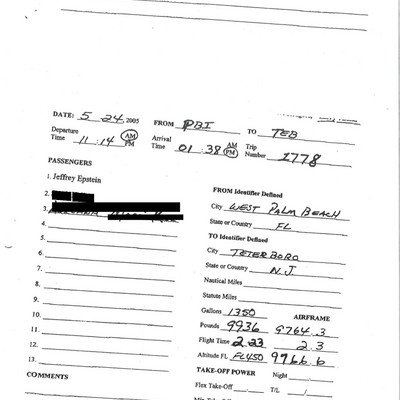 DATE: 5 24, 2005 FROM PBI TO TEB
Departure Time 11:14 AM PM Arrival Time 01:38 AM PM Trip Number 1778
PASSENGERS
1. Jeffrey Epstein
2.
3.
4.
5.
6.
7.
8.
9.
10.
11.
12.
13.
COMMENTS
FROM Identifier Defined
City WEST PALM BEACH
State or Country FL
TO Identifier Defined
City TETERBORO
State or Country N.J
Nautical Miles
Statute Miles
Gallons 1350 AIRFRAME
Pounds 9936 9764.3
Flight Time 2.23 2.3
Altitude FL FL450 9766.6
TAKE-OFF POWER Night
Flex Take-Off T/L /